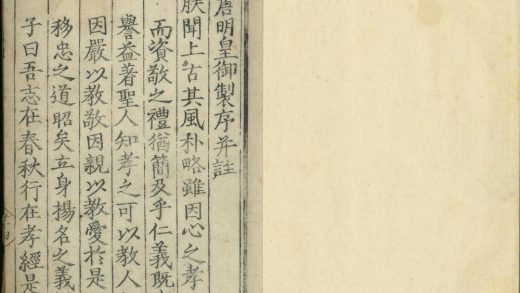 唐明皇御製序并註
朕聞上古其風朴略雖因心之孝
而資敬之禮猶簡及乎仁義既
譽益著聖人知孝之可以教人
因嚴以教敬因親以教愛於是
移忠之道昭矣立身揚名之義
子曰吾志在春秋行在孝經是